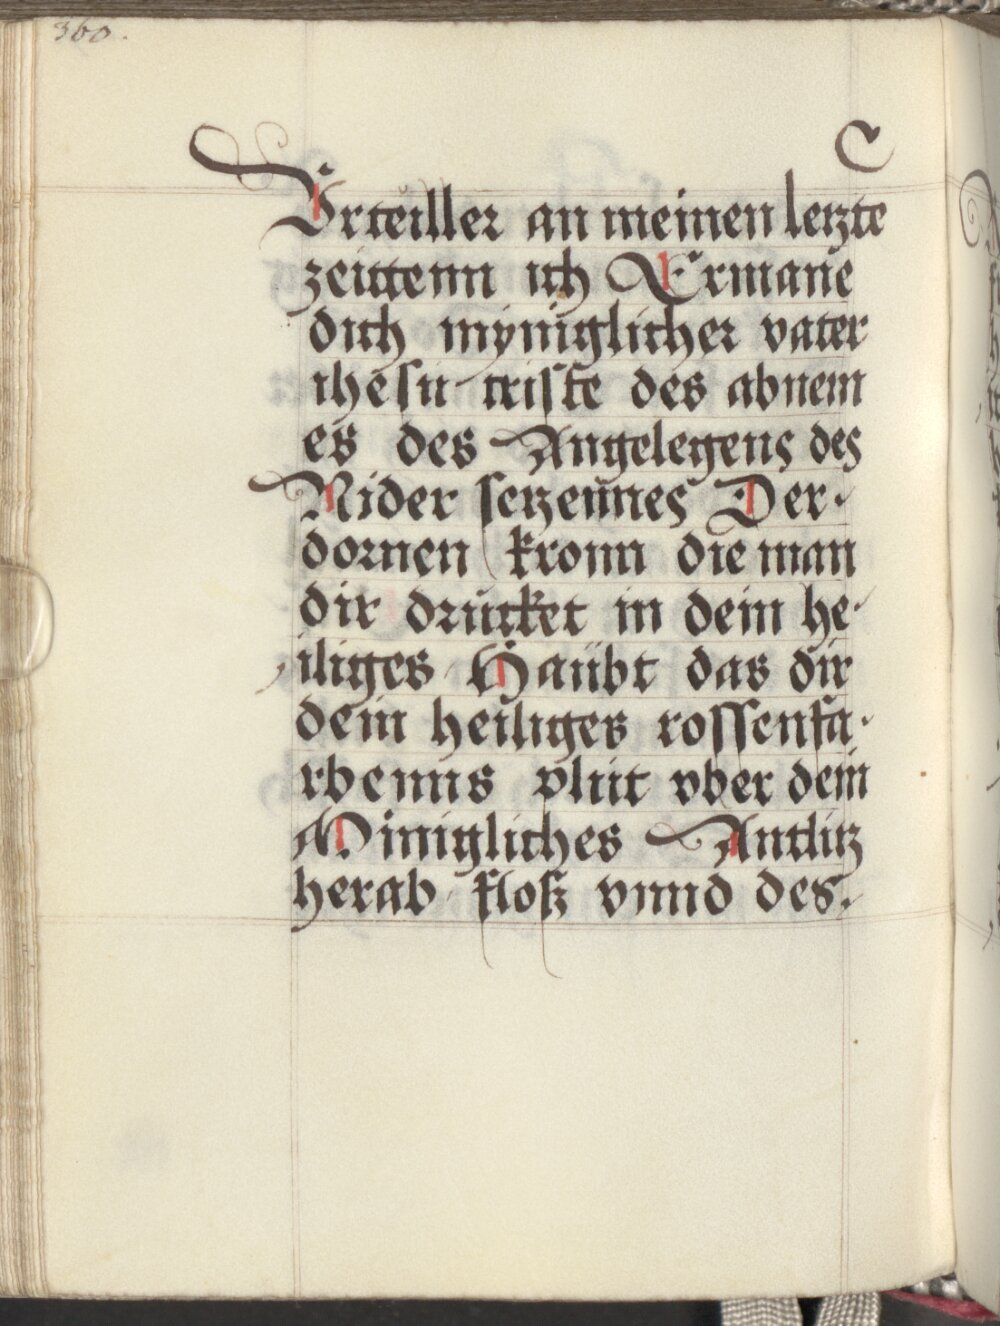 360.
C
Vrteiller an meinen letzte
zeittenn ich Ermane
dich myniglicher vater
ihesu criste des abnem
es des Angelegens des
Nider setzennes Der
dornen kronn die man
dir drucket in dein he
iliges Haübt das dir
dein heiliges rossenfa
rbenns plüt vber dein
Minigliches Antlitz
herab floß vnnd des.